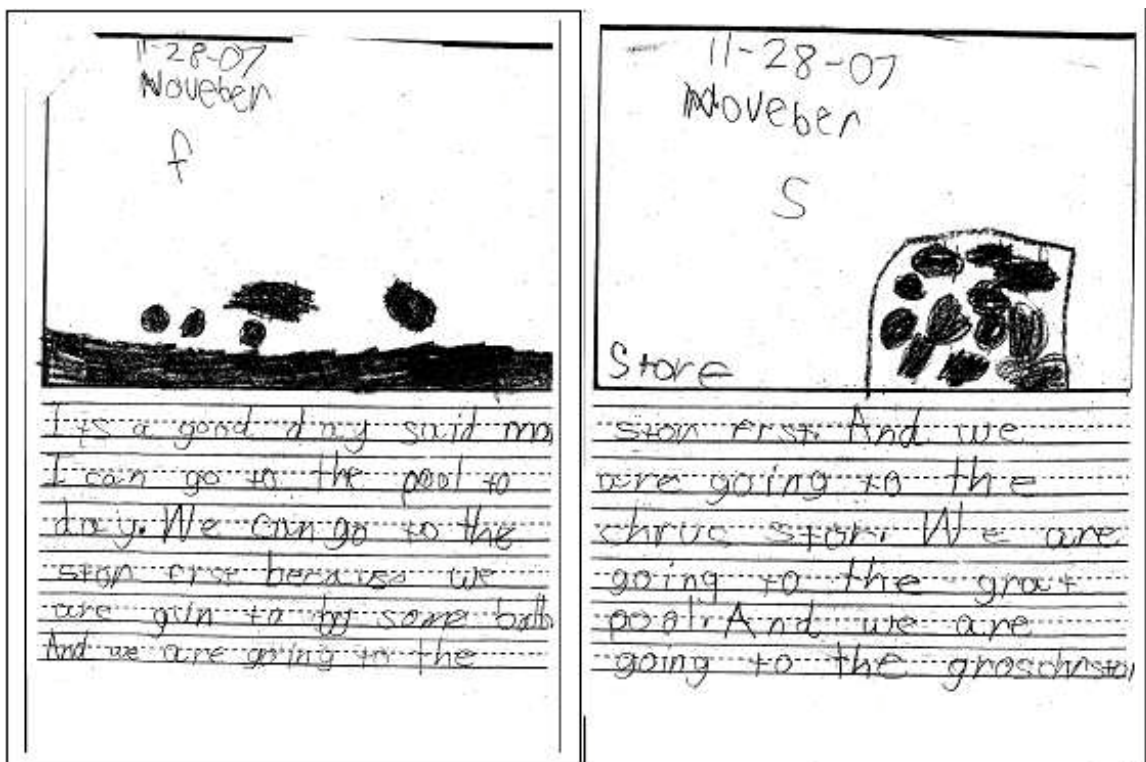 11-28-07
Noveber
f
Its a good day said mo
I can go to the pool to
day. We can go to the
stor frst because we
are gun to by some ball
And we are going to the
11-28-07
Noveber
S
Store
stor frst. And we
are going to the
chruc stor. We are
going to the grat
pool. And we are
going to the groschrstor